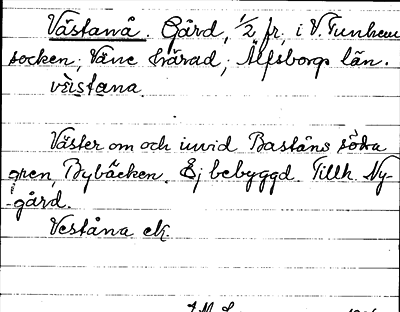 Västanå. Gård, 1/2 fr. i V. Tunhem
socken, Väne härad, Älfsborgs län.
västana.
Väster om och invid Baståns södra
gren, Bybäcken. Ej bebyggd. Tillh. Ny-
gård.
Veståna ek